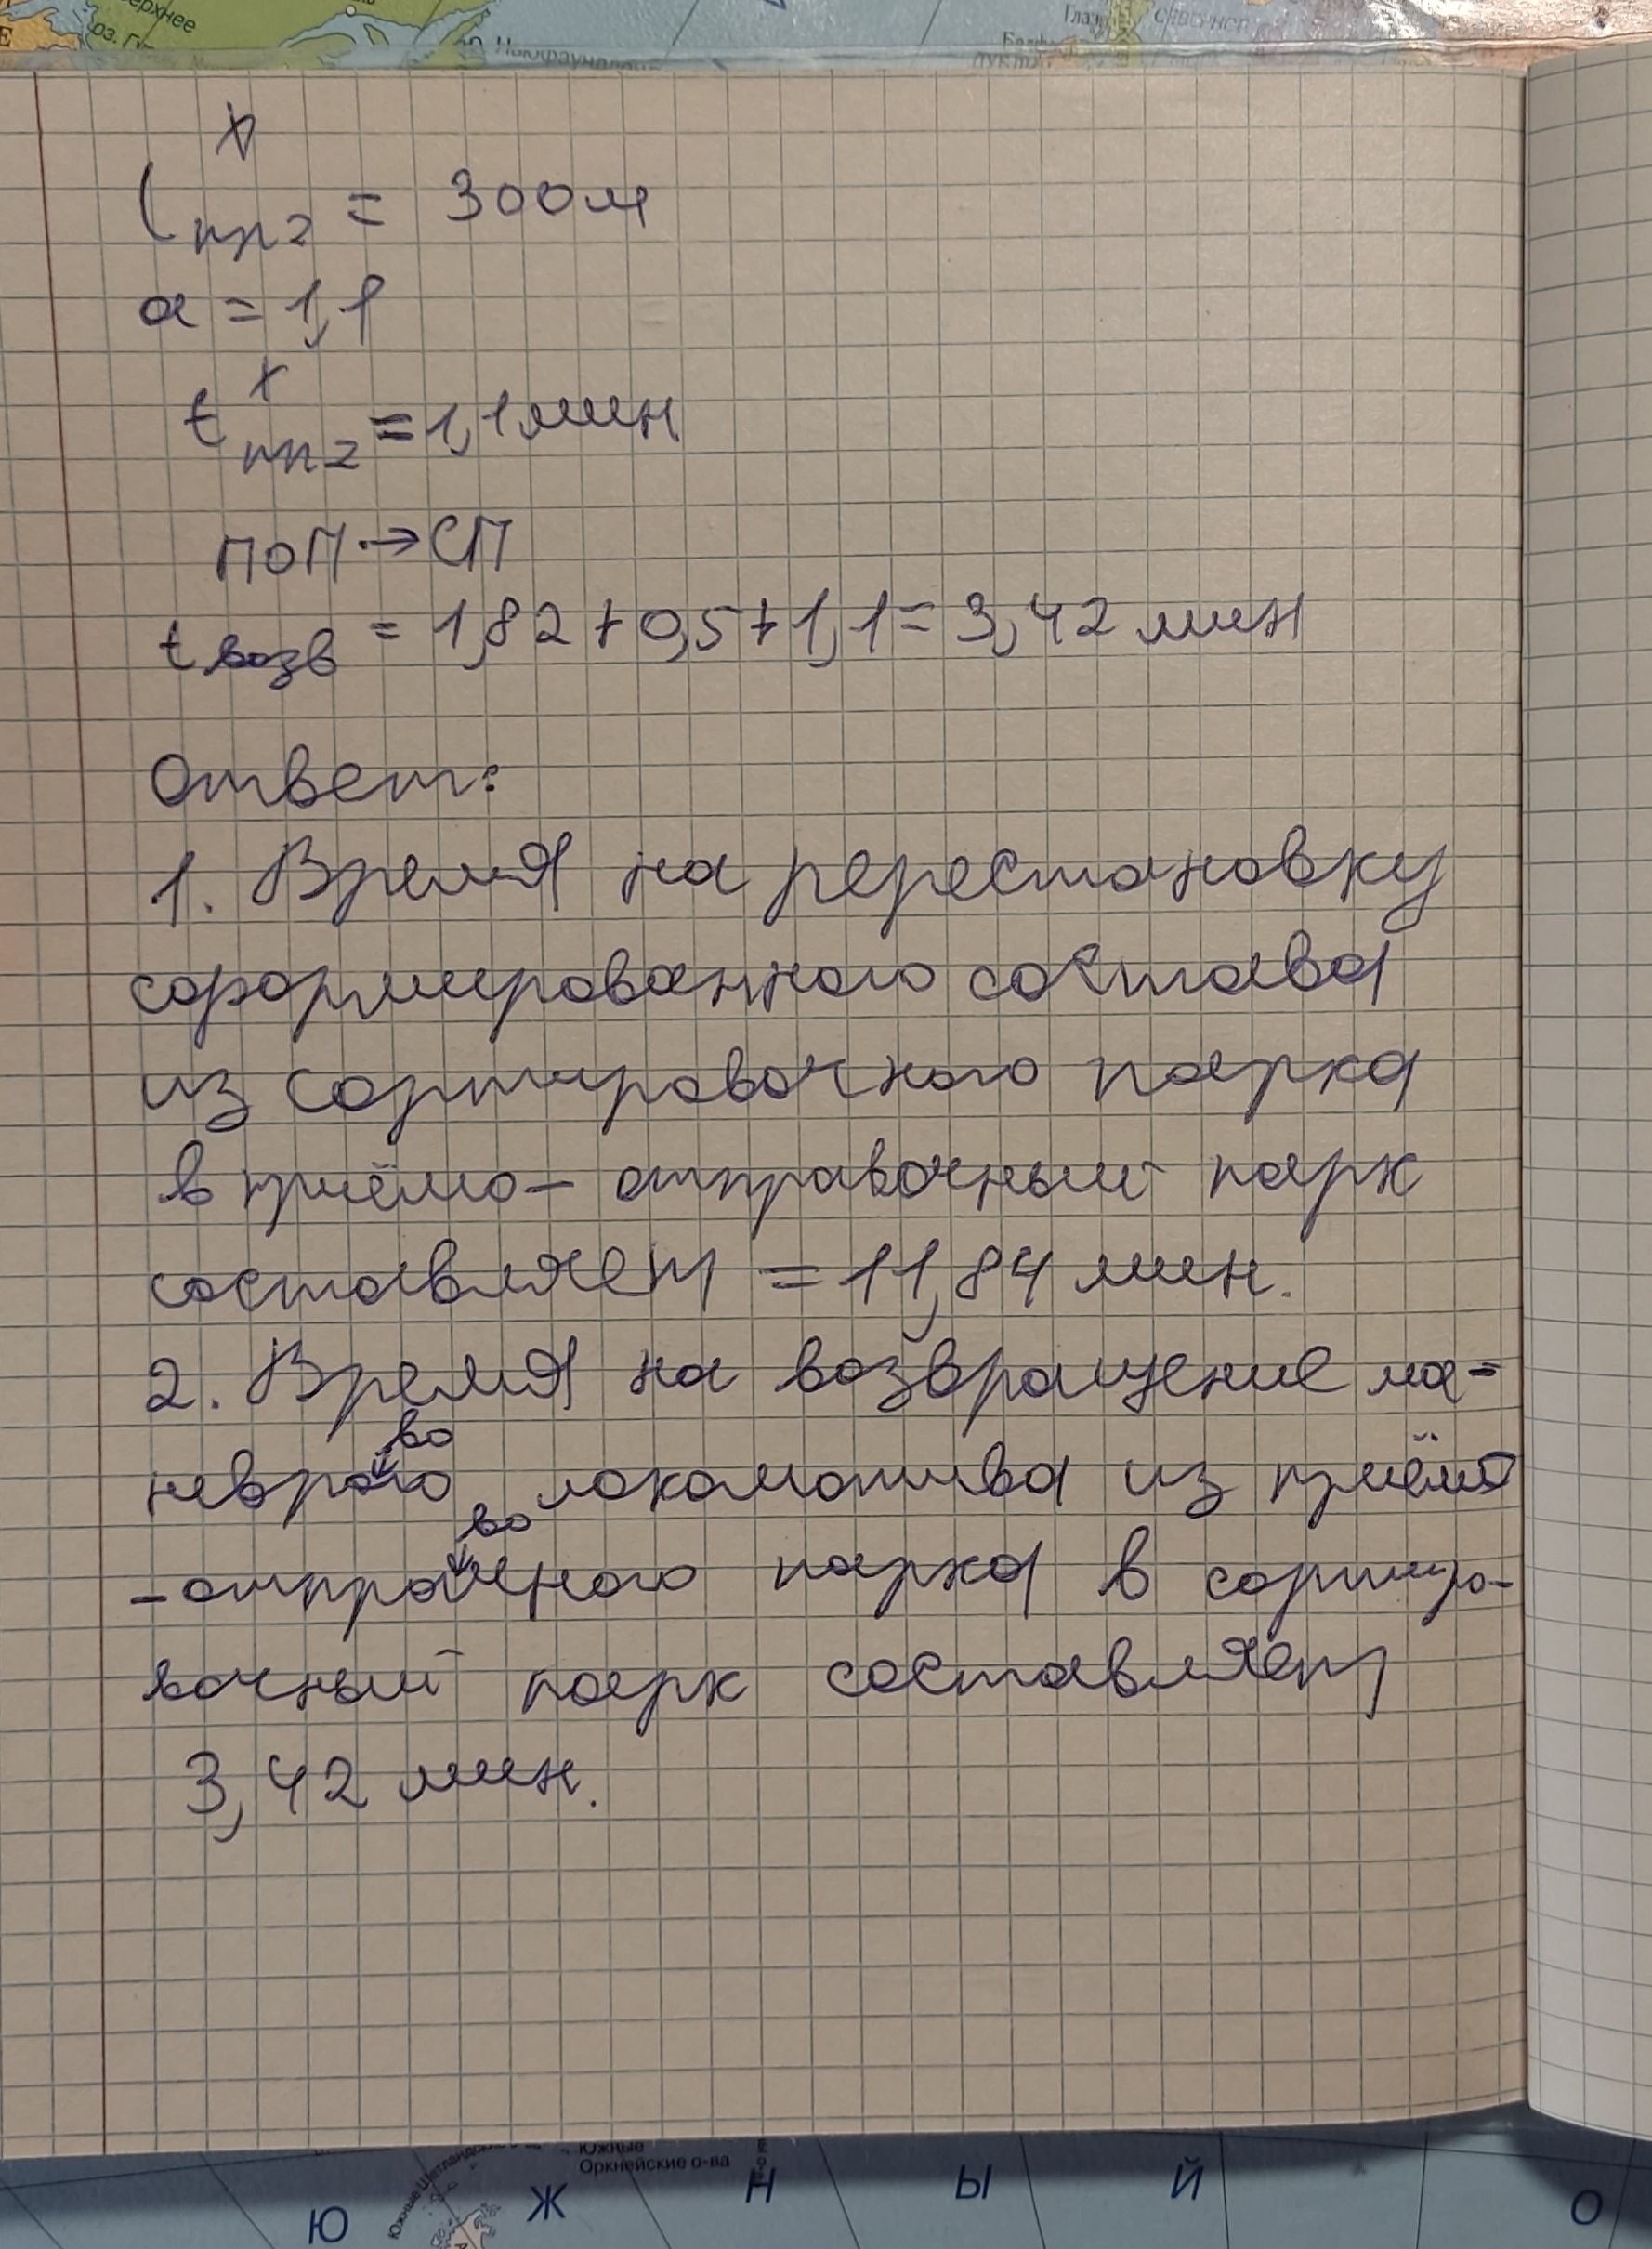 ерхнее
оз. Гу
Е
о. Ньюфаундленд
Глаз
l^x_пп2 = 300м
a = 1,1
t^x_пп2 = 1,1 мин
ПОП → СП
t возв = 1,82 + 0,5 + 1,1 = 3,42 мин
Ответ:
1. Время на перестановку
сформированного состава
из сортировочного парка
в приёмо- отправочный парк
составляет = 11,84 мин.
2. Время на возвращение ма-
во
неврого локомотива из приёмо
во
-отпрачного парка в сортиро-
вочный парк составляет
3,42 мин.
Южные Шетландские
Южные
Оркнейские о-ва
Ю Ж Н Ы Й О